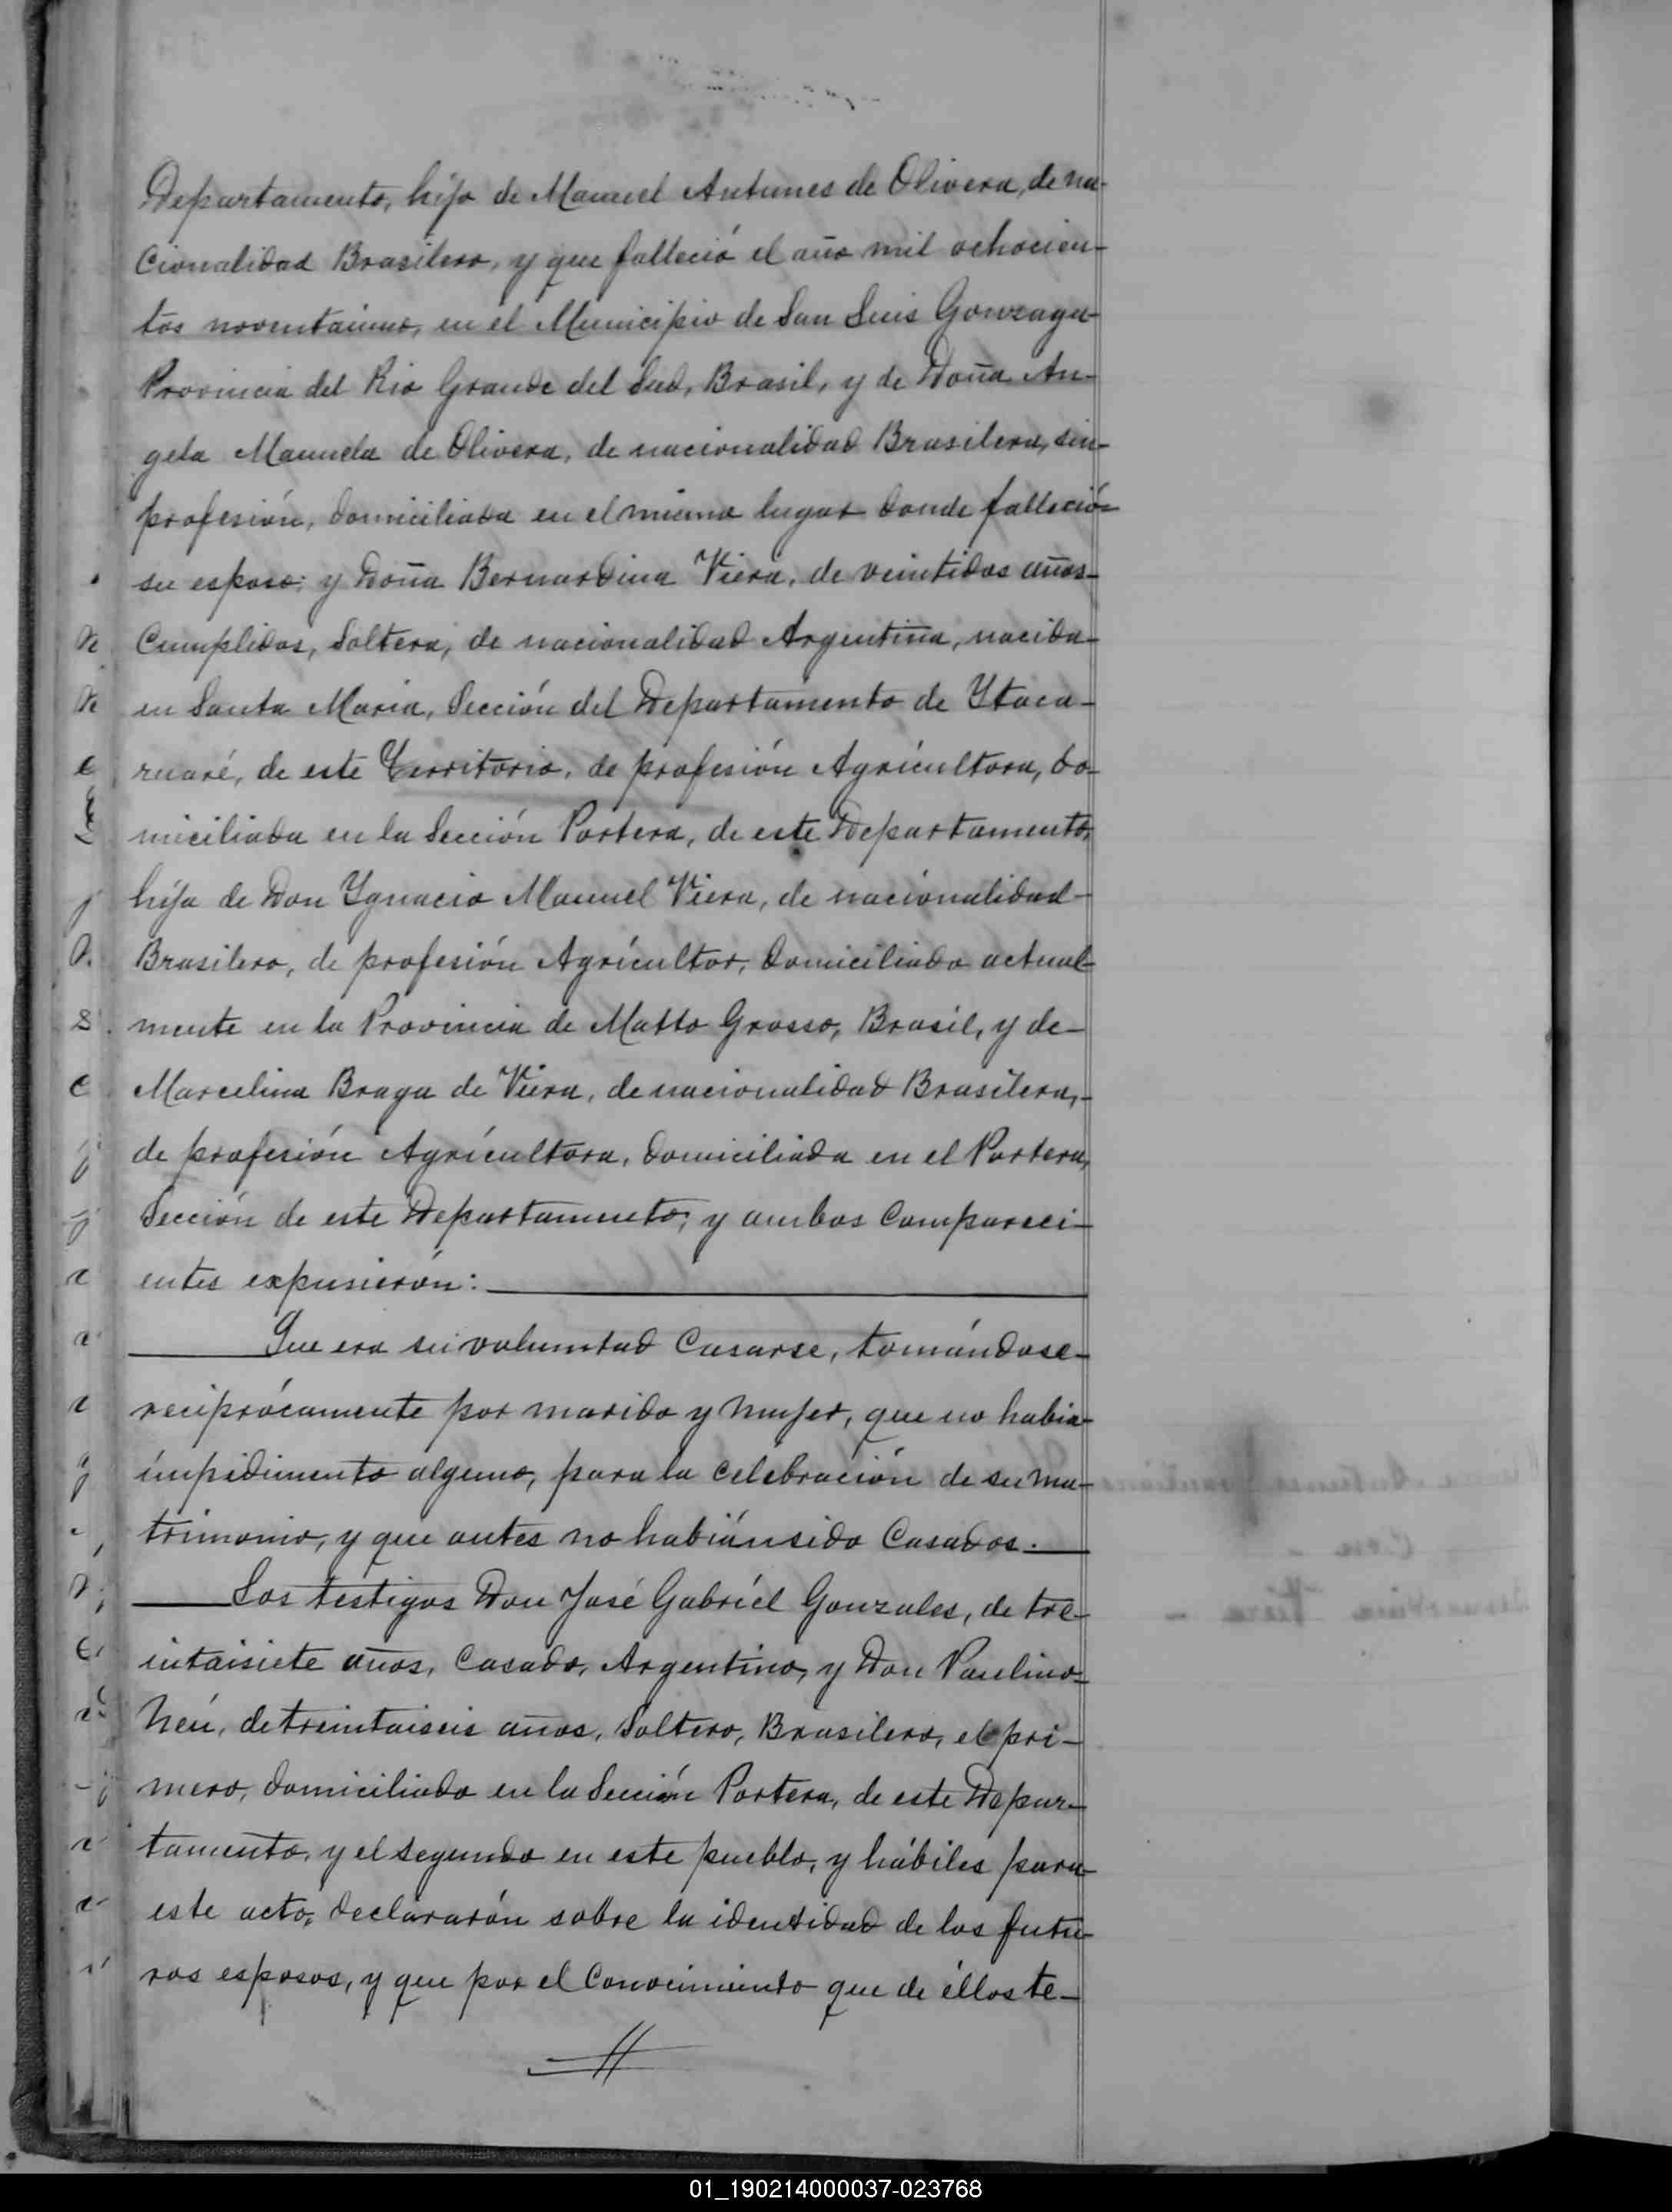 Departamento, hijo de Manuel Antunes de Olivera, de na-
cionalidad Brasilero, y que falleció el año mil ochocien-
tos noventaiuno, en el Municipio de San Luis Gonzaga
Provincia del Rio Grande del Sud, Brasil, y de Doña An-
gela Manuela de Olivera, de nacionalidad Brasilera, sin-
profesión, domiciliada en el mismo lugar donde falleció-
su esposo; y Doña Bernardina Viera, de veintidos años-
Cumplidos, Soltera, de nacionalidad Argentina, nacida-
en Santa Maria, Sección del Departamento de Ytaca-
ruaré, de este Territorio, de profesión Agrícultora, do-
miciliada en la Sección Portera, de este Departamento,
hija de Don Ygnacio Manuel Viera, de nacionalidad-
Brasilero, de profesión Agrícultor, domiciliado actual-
mente en la Provincia de Matto Grosso, Brasil, y de-
Marcelina Braga de Viera, de nacionalidad Brasilera,-
de profesión Agrícultora, domiciliada en el Portera,
Sección de este Departamento; y ambos Compareci-
entes expusierón:
Que era su voluntad Casarse, tomándose-
reciprócamente por marido y mujer, que no habia-
impedimento alguno, para la celebración de su ma-
trimonio, y que antes no habián sido Casados.
Los testigos Don José Gabriél Gonzales, de tre-
intaisiete años, Casado, Argentino, y Don Paulino-
Neú, de treintaiseis años, Soltero, Brasilero, el pri-
mero, domiciliado en la Sección Portera, de este Depar-
tamento, y el segundo en este pueblo, y hábiles para-
este acto, declararón sobre la identidad de los futu-
ros esposos, y que por el Conocimiento que de éllos te-
01_190214000037-023768